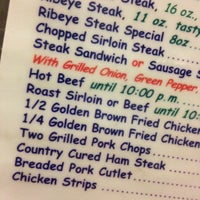 Steak, 16 oz.,
Ribeye Steak, 11 oz. tasty
Ribeye Steak Special 8oz..
Chopped Sirloin Steak
Steak Sandwich or Sausage S
With Grilled Onion, Green Pepper,
Hot Beef until 10:00 p.m.
Roast Sirloin or Beef until 10:
1/2 Golden Brown Fried Chicken
1/4 Golden Brown Fried Chicken
Two Grilled Pork Chops
Country Cured Ham Steak
Breaded Pork Cutlet
Chicken Strips